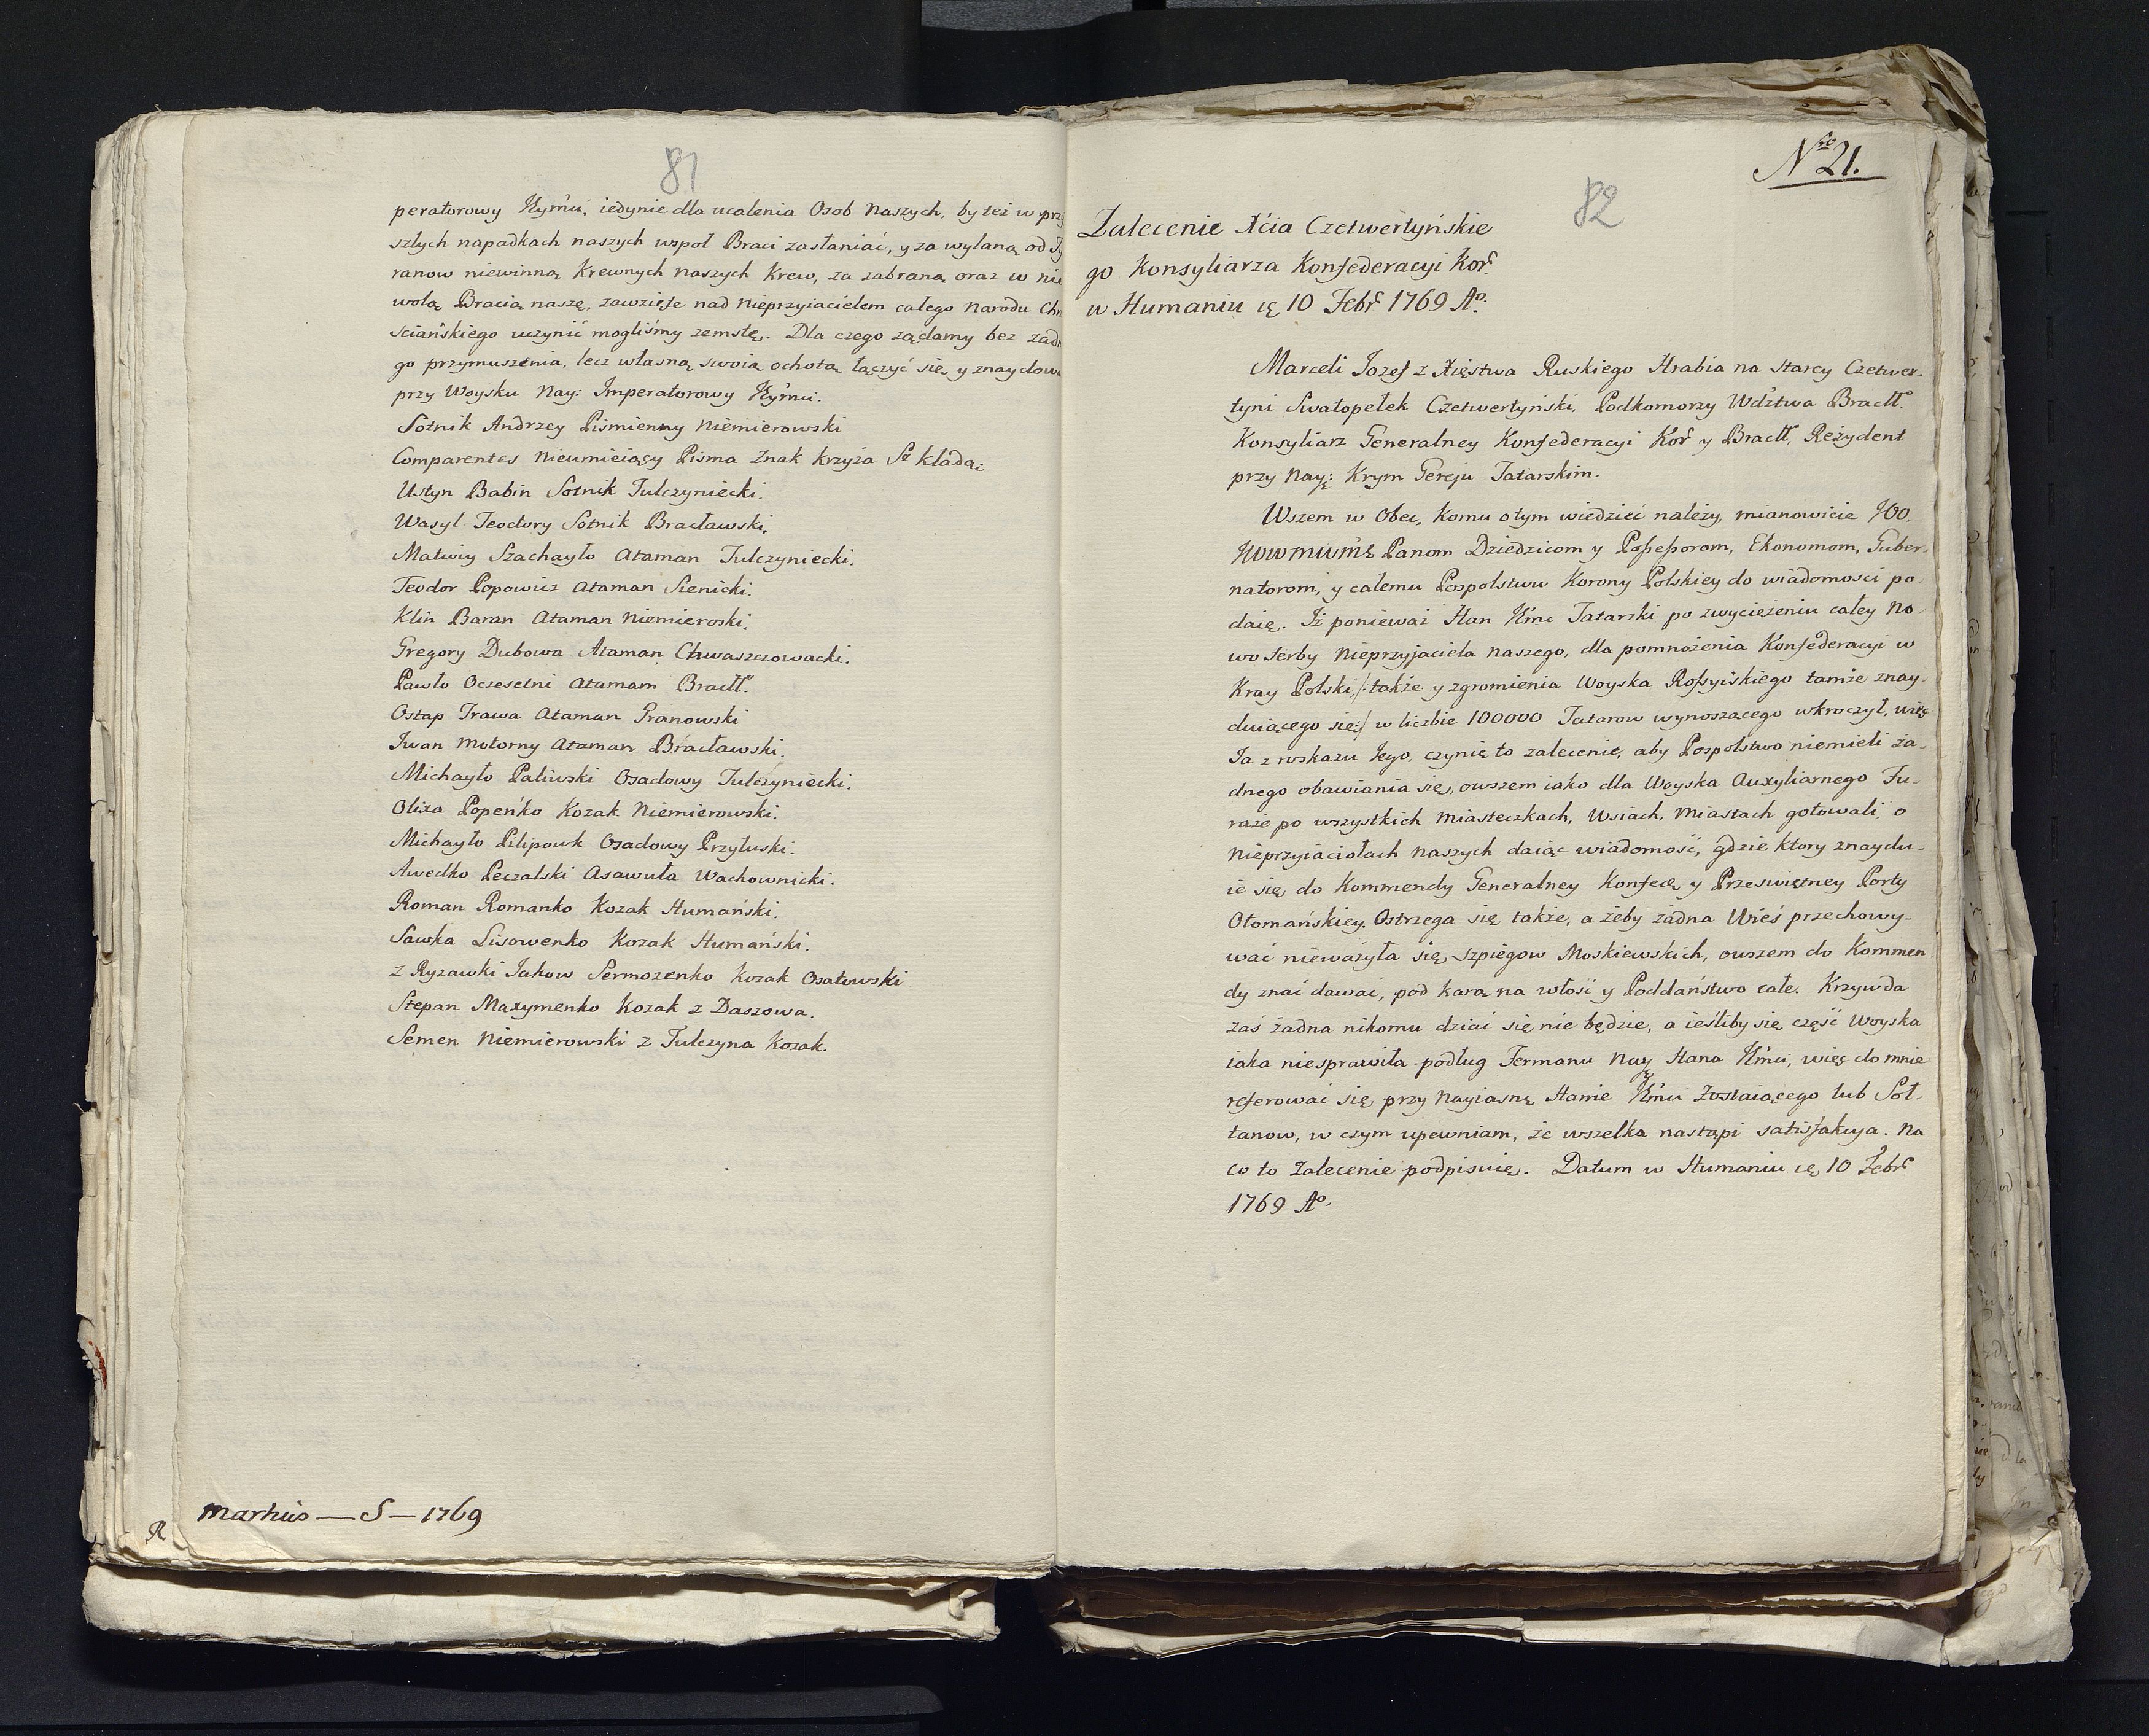 81
peratorowy Jłymći. iedynie dla ucalenia Osob Naszych, by też w prz
szłych napadkach naszych wspoł Braci zasłaniać, y za wylaną od Ty
ranow niewinną Krewnych naszych Krew, za zabraną oraz w nie
wolą Bracią naszę, zawzięte nad Nieprzyiacielem całego Narodu Chr
sciańskiego uczynić mogliśmy zemstę. Dla czego żądamy bez żadn
go przymuszenia, lecz własną swoią ochotą łączyć się y znaydowa
przy Woysku Nay: Imperatorowy Jłymći.
Sotnik Andrzey Piśmienny Niemierowski
Comparentes Nieumieiący Pisma Znak krzyża Sę kładą:
Ustyn Babin Sotnik Tulczyniecki.
Wasyl Teodory Sotnik Bracławski.
Matwiy Szachayło Ataman Tulczyniecki.
Teodor Popowicz Ataman Sienicki.
Klin Baran Ataman Niemieroski.
Gregory Dubowa Ataman Chwaszczowacki.
Pawło Oczesetni Atamam Bracłł.
Ostap Trawa Ataman Granowski
Iwan Motorny Ataman Bracławski.
Michayło Paliwski Osadowy Tulczyniecki.
Olixa Popeńko Kozak Niemierowski.
Michayło Pilipowk Osadowy Przyłuski.
Awedko Peczalski Asawuła Wachownicki.
Roman Romanko Kozak Humański.
Sawka Lisowenko Kozak Humański.
z Ryzawki Jakow Sermozenko Kozak Osatowski
Stepan Maxymenko Kozak z Daszowa.
Semen Niemierowski z Tulczyna Kozak.
Martius — S — 1769
R
Nro 21.
82
Zalecenie Xćia Czetwertyńskie
go Konsyliarza Konfederacyi Kor.
w Humaniu ię 10 Febr 1769 Ao.
Marceli Jozef z Xięstwa Ruskiego Hrabia na Starey Czetwer.
tyni Swatopełek Czetwertyński, Podkomorzy Wdztwa Bracłł.
Konsyliarz Generalney Konfederacyi Kor y Bracłł, Reżydent
przy Nay: Krym Gereju Tatarskim.
Wszem w Obec, Komu o tym wiedzieć należy, mianowicie JOO.
JWWMWM Panom Dziedzicom y Possessorom, Ekonomom, Guber.
natorom, y całemu Pospolstwu Korony Polskiey do wiadomosci po.
daię. Iż ponieważ Han Jłmć Tatarski po zwyciężeniu całey No.
wo Serby Nieprzyjaciela naszego, dla pomnożenia Konfederacyi w
Kray Polski /: także y zgromienia Woyska Rossyiskiego tamże znay.
duiącego się :/ w liczbie 100000 Tatarow wynoszącego wkroczył, więc
Ja z roskazu Jego, czynię to zalecenie, aby Pospolstwo niemieli ża.
dnego obawiania się, owszem iako dla Woyska Auxyliarnego Fu.
raże po wszystkich Miasteczkach, Wsiach, Miastach gotowali, o
Nieprzyiaciołach naszych daiąc wiadomość, gdzie ktory znaydu.
ie się, do Kommendy Generalney Konfede y Przeswiętney Porty
Otomańskiey. Ostrzega się także, a żeby żadna Wieś przechowy.
wać nieważyła się szpiegow Moskiewskich, owszem do Kommen.
dy znać dawać, pod karą na włość y Poddaństwo całe. Krzywda
zaś żadna nikomu dziać się nie będzie, a ieśliby się część Woyska
iaka niesprawiła podług Fermanu Nay Hana Jłmći, więc do mnie
referować się, przy Nayiasnę Hanie Jłmći Zostaiącego lub Soł.
tanow, w czym upewniam, że wszelka nastąpi satisfakcya. Na
co to Zalecenie podpisuię. Datum w Humaniu ię 10 Febr
1769 Ao.